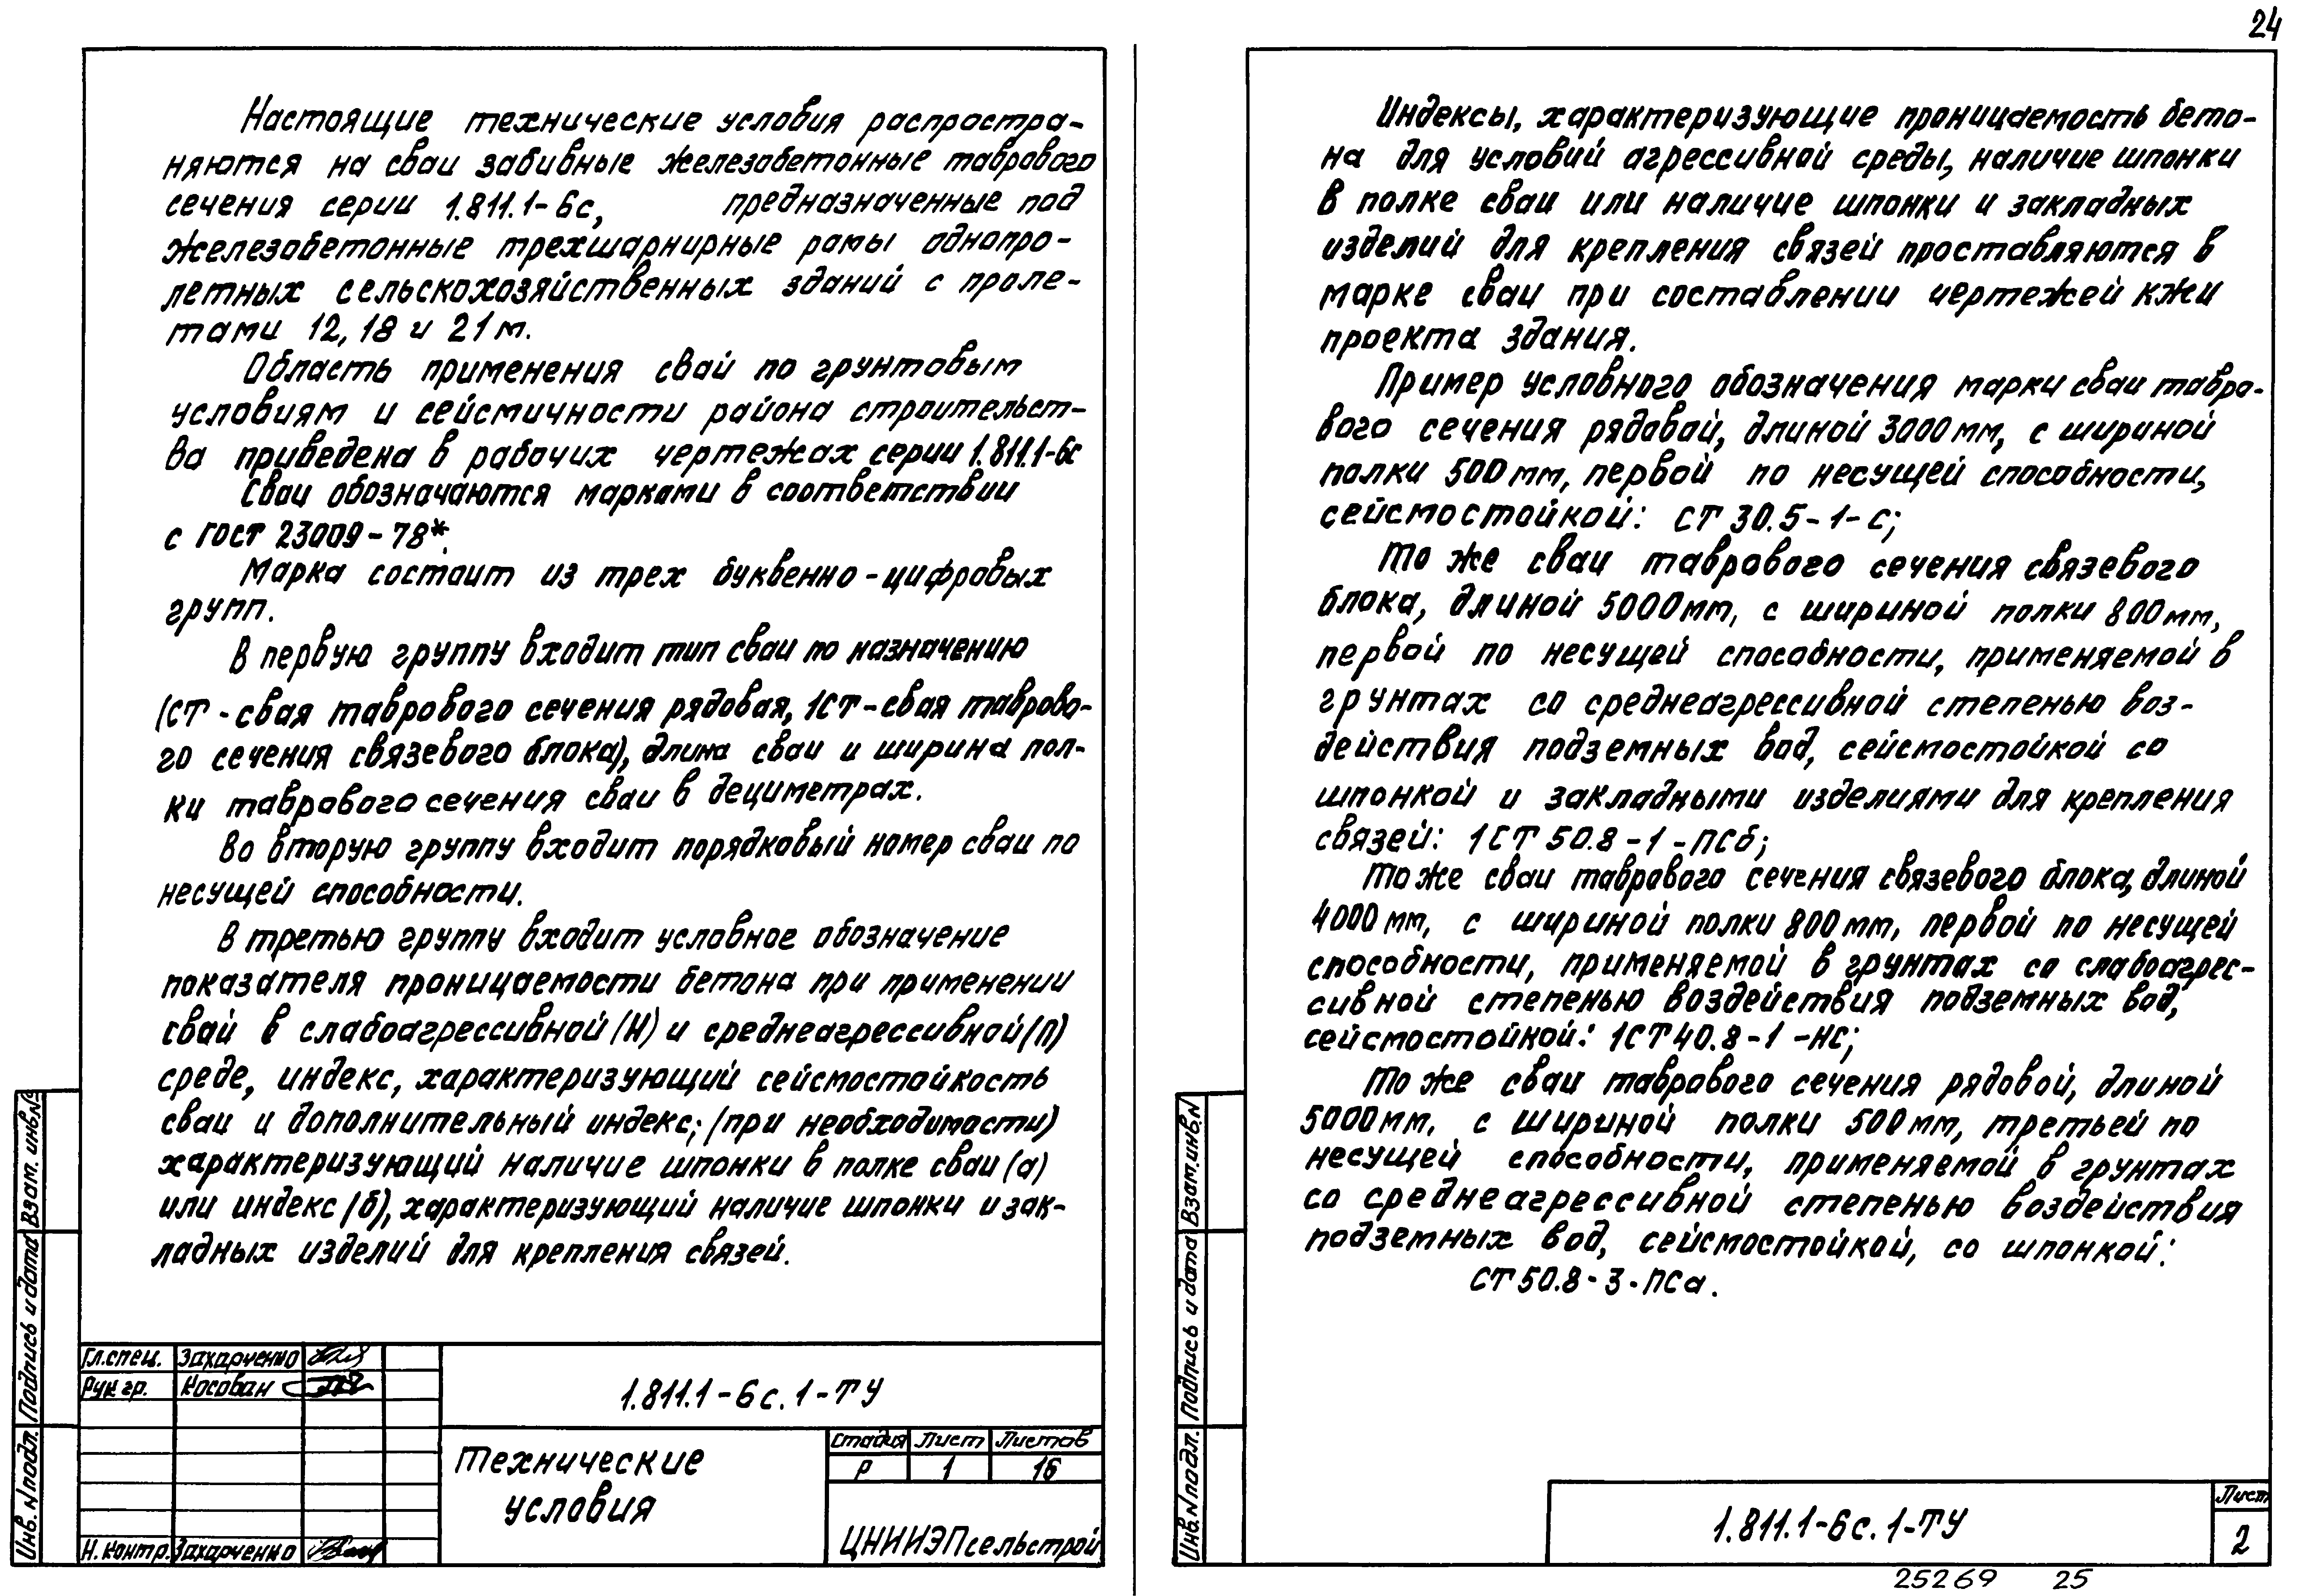 24
Настоящие технические условия распростра-
няются на сваи забивные железобетонные таврового
сечения серии 1.811.1-6с, предназначенные под
железобетонные трехшарнирные рамы однопро-
летных сельскохозяйственных зданий с проле-
тами 12, 18 и 21 м.
Область применения свай по грунтовым
условиям и сейсмичности района строительст-
ва приведена в рабочих чертежах серии 1.811.1-6с
Сваи обозначаются марками в соответствии
с ГОСТ 23009-78*.
Марка состоит из трех буквенно-цифровых
групп.
В первую группу входит тип сваи по назначению
(СТ - свая таврового сечения рядовая, 1СТ - свая таврово-
го сечения связевого блока), длина сваи и ширина пол-
ки таврового сечения сваи в дециметрах.
Во вторую группу входит порядковый номер сваи по
несущей способности.
В третью группу входит условное обозначение
показателя проницаемости бетона при применении
свай в слабоагрессивной (Н) и среднеагрессивной (П)
среде, индекс, характеризующий сейсмостойкость
сваи и дополнительный индекс; (при необходимости)
характеризующий наличие шпонки в полке сваи (а)
или индекс (б), характеризующий наличие шпонки и зак-
ладных изделий для крепления связей.
Гл.спец. Захарченко
Рук гр. Косован
Н.контр. Захарченко
1.811.1-6с.1-ТУ
Технические
условия
Стадия Лист Листов
Р 1 16
ЦНИИЭПсельстрой
Инв.N подл. Подпись и дата Взам. инв.N
Индексы, характеризующие проницаемость бето-
на для условий агрессивной среды, наличие шпонки
в полке сваи или наличие шпонки и закладных
изделий для крепления связей проставляются в
марке сваи при составлении чертежей КЖИ
проекта здания.
Пример условного обозначения марки сваи тавро-
вого сечения рядовой, длиной 3000 мм, с шириной
полки 500 мм, первой по несущей способности,
сейсмостойкой: СТ 30.5-1-С;
То же сваи таврового сечения связевого
блока, длиной 5000 мм, с шириной полки 800 мм,
первой по несущей способности, применяемой в
грунтах со среднеагрессивной степенью воз-
действия подземных вод, сейсмостойкой со
шпонкой и закладными изделиями для крепления
связей: 1СТ 50.8-1-ПСб;
То же сваи таврового сечения связевого блока, длиной
4000 мм, с шириной полки 800 мм, первой по несущей
способности, применяемой в грунтах со слабоагрес-
сивной степенью воздействия подземных вод,
сейсмостойкой: 1СТ 40.8-1-НС;
То же сваи таврового сечения рядовой, длиной
5000 мм, с шириной полки 500 мм, третьей по
несущей способности, применяемой в грунтах
со среднеагрессивной степенью воздействия
подземных вод, сейсмостойкой, со шпонкой:
СТ 50.8-3-ПСа.
Инв.N подл. Подпись и дата Взам.инв.N
1.811.1-6с.1-ТУ
Лист
2
25269 25